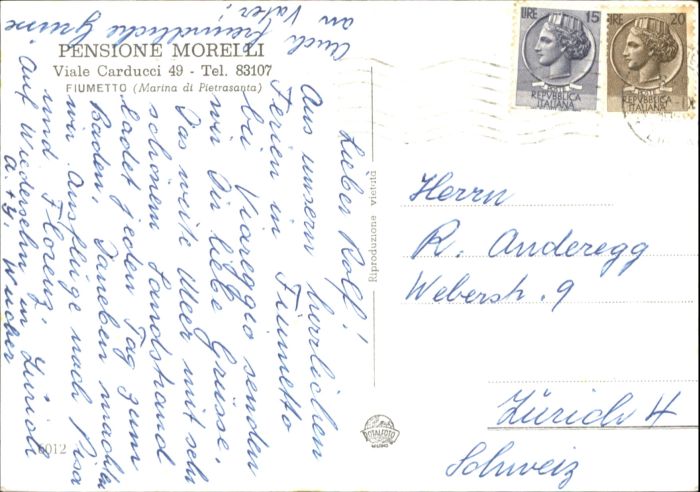 Auch freundliche Grüsse
an Vater!
PENSIONE MORELLI
Viale Carducci 49 - Tel. 83107
FIUMETTO (Marina di Pietrasanta)
Lieber Rolf!
Aus unsern herrlichen
Ferien in Fiumetto
bei Viareggio senden
wir Dir liebe Grüsse.
Das weite Meer mit sehr
schönem Sandstrand
ladet jeden Tag zum
Baden. Daneben machten
wir Ausflüge nach Pisa
und Florenz.
Auf Wiedersehn in Zürich
A. + G. Wucher
6012
Riproduzione vietata
ROTALFOTO
MILANO
LIRE 15
REPVBBLICA
ITALIANA
LIRE 20
REPVBBLICA
ITALIANA
Herrn
R. Anderegg
Weberstr. 9
Zürich 4
Schweiz